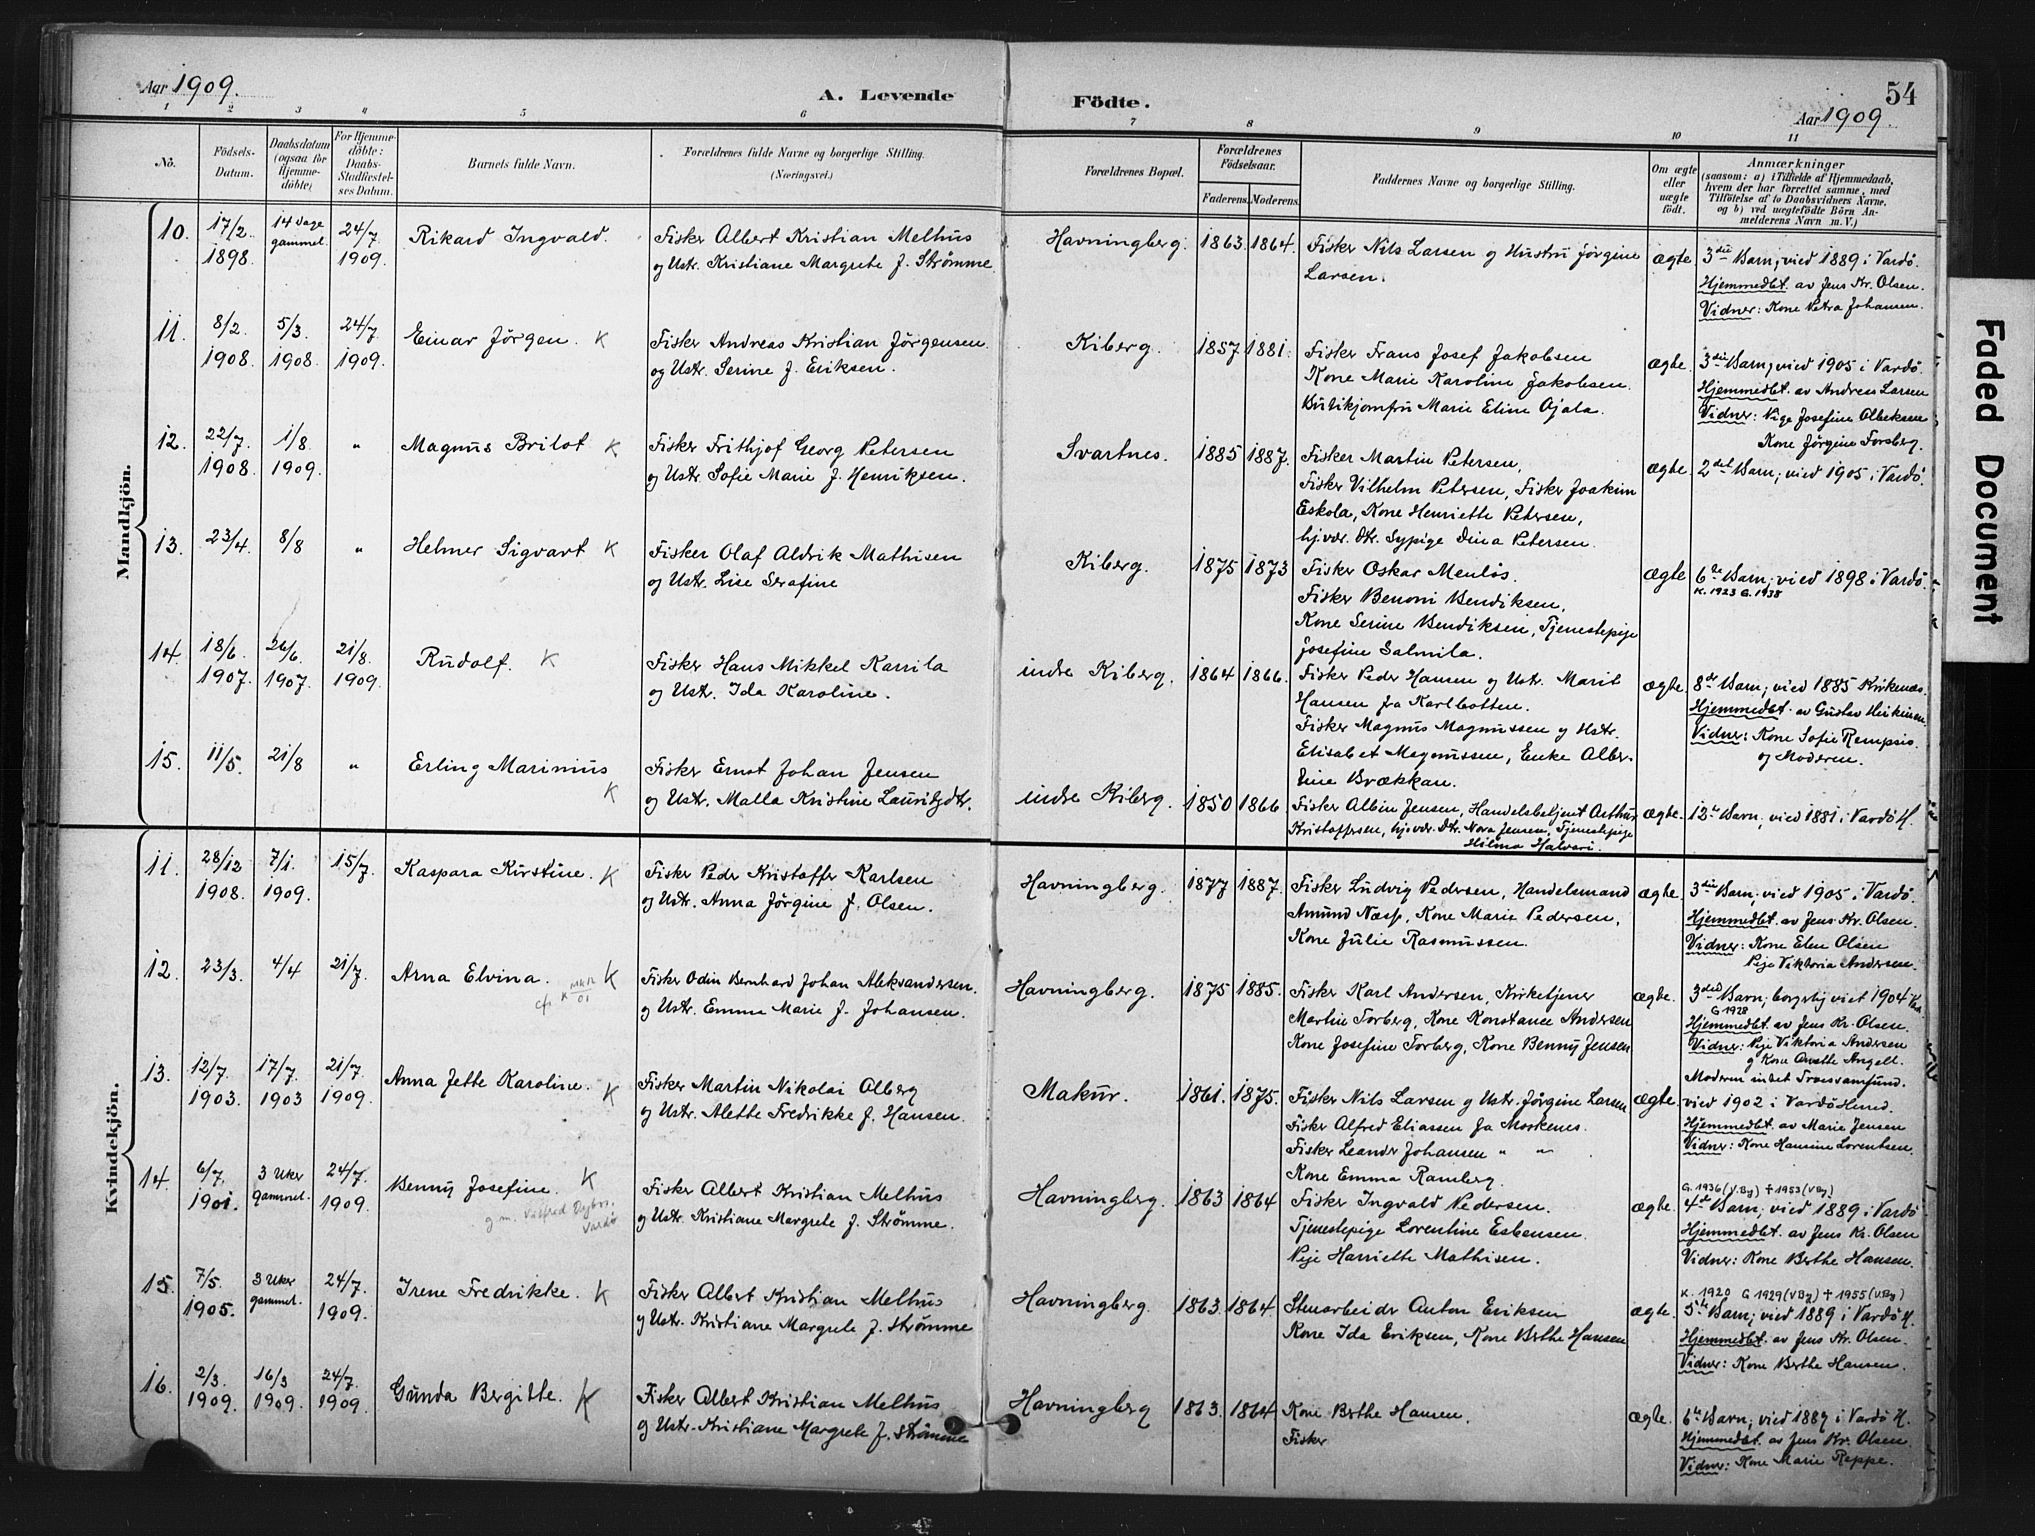 Aar 1909.
A. Levende
Födte.
54
Aar 1909.
1 2 3 4 5 6 7 8 9 10 11
No.
Födsels-
Datum.
Daabsdatum
(ogsaa for
Hjemme-
döbte)
For Hjemme-
döbte:
Daabs-
Stadfæstel-
ses Datum.
Barnets fulde Navn.
Forældrenes fulde Navne og borgerlige Stilling.
(Næringsvei.)
Forældrenes Bopæl.
Forældrenes
Födselsaar.
Faderens. Moderens.
Faddernes Navne og borgerlige Stilling.
Om ægte
eller
uægte
födt.
Anmærkninger
(saasom: a) i Tilfælde af Hjemmedaab,
hvem der har forrettet samme, med
Tilföielse af to Daabsvidners Navne,
og b) ved uægtefödte Börn An-
melderens Navn m.V.)
Mandkjön.
10. 17/2 1898 14 dage gammel. 24/7 1909. Rikard Ingvald.
Fisker Albert Kristian Melhus
og Ustr. Kristiane Margrete f. Strømme
Havningberg. 1863. 1864.
Fisker Nils Larsen og Hustru Jørgine
Larsen.
ægte
3die Barn; vied 1889 i Vardø.
Hjemmedbt. av Jens Kr. Olsen.
Vidner: Kone Petra Johansen.
11. 8/2 1908. 5/3 1908. 24/7 1909. Einar Jörgen. K
Fisker Andreas Kristian Jörgensen
og Ustr. Serine f. Eriksen.
Kiberg. 1857 1881.
Fisker Frans Josef Jakobsen
Kone Marie Karoline Jakobsen.
Butikjomfru Marie Eline Ojala.
ægte.
3die Barn; vied 1905 i Vardø.
Hjemmedbt. av Andreas Larsen
Vidner: Pige Josefine
Kone Jörgine Forsberg.
12. 22/7 1908. 1/8 1909. " Magnus Brilot K
Fisker Frithjof Georg Petersen
og Ustr. Sofie Marie f. Henriksen.
Svartnes. 1885 1887.
Fisker Martin Petersen,
Fisker Vilhelm Petersen, Fisker Joakim
Eskola, Kone Henriette Petersen,
hj.vær. dtr. Sypige Dina Petersen.
ægte
2det Barn; vied 1905 i Vardø.
13. 23/4. 8/8 " Helmer Sigvart K
Fisker Olaf Aldrik Mathisen
og Ustr. Lise Serafine
Kiberg. 1875 1873
Fisker Oskar Menløs.
Fisker Benoni Bendiksen,
Kone Serine Bendiksen, Tjenestepige
Josefine Salmila.
ægte
6te Barn; vied 1898 i Vardø.
K. 1923 G. 1938
14. 18/6. 1907. 26/6. 1907. 21/8. 1909. Rudolf. K
Fisker Hans Mikkel Karrila
og Ustr. Ida Karoline.
indre Kiberg. 1864 1866.
Fisker Peder Hansen og Ustr. Marit
Hansen fra Karlbotten.
Fisker Magnus Magnussen og Ustr.
Elisabet Magnussen, Enke Alber-
tine Brækkan.
ægte.
8de Barn; vied 1885 Kirkenæs.
Hjemmedbt. av Gustav
Vidner: Kone Sofie
og Moderen.
15. 11/5. 21/8 " Erling Marinius K
Fisker Ernst Johan Jensen
og Ustr. Malla Kristine Lauritsdtr.
indre Kiberg. 1850 1866
Fisker Albin Jensen, Handelsbetjent Arthur
Kristoffersen, hjvær. dtr. Nora Jensen, Tjenestepige
Hilma Halvari.
ægte.
12te Barn; vied 1881 i Vardø H.
Kvindekjön.
11. 28/12 1908. 7/1. 1909. 15/7. Kaspara Kirstine. K
Fisker Peder Kristoffer Karlsen
og Ustr. Anna Jørgine f. Olsen.
Havningberg. 1877 1887.
Fisker Ludvig Pedersen, Handelsmand
Amund Næsp, Kone Marie Pedersen,
Kone Julie Rasmussen.
ægte.
3die Barn; vied 1905 i Vardø.
Hjemmedbt. av Jens Kr. Olsen.
Vidner: Kone Elen Olsen
Pige Viktoria Andersen.
12. 23/3. 4/4 21/7. Arna Elvina. K
Fisker Odin Bernhard Johan Aleksandersen.
og Ustr. Emma Marie f. Johansen.
Havningberg. 1875 1885.
Fisker Karl Andersen, Kirketjener
Martin Torberg, Kone Konstance Andersen
Kone Josefine Torberg, Kone Benny Jensen
ægte.
3die Barn; borgerlig viet 1904
G 1928
Hjemmedbt. av Jens Kr. Olsen.
Vidner: Pige Viktoria Andersen
og Kone Anette Angell.
13. 12/7. 1903. 17/7. 1903 21/7. 1909. Anna Jette Karoline. K
Fisker Martin Nikolai Olberg
og Ustr. Alette Fredrikke f. Hansen.
Makur. 1861. 1875.
Fisker Nils Larsen og Ustr. Jørgine Larsen
Fisker Alfred Eliassen fra Moskenes.
Fisker Leander Johansen " "
Kone Emma Ramberg.
ægte.
Moderen indet Troessamfund.
vied 1902 i Vardø Herred.
Hjemmedbt. av Marie Jensen
Vidner: Kone Hansine Lorentsen.
14. 6/7. 1901. 3 Uker gammel. 24/7. 1909. Benny Josefine. K
Fisker Albert Kristian Melhus
og Ustr. Kristiane Margrete f. Strømme.
Havningberg. 1863 1864
Fisker Ingvald Pedersen.
Tjenestepige Lorentine Esbensen.
Pige Harriette Mathisen.
ægte.
G. 1936 (V.By) † 1953 (V.By)
4de Barn; vied 1889 i Vardø
Hjemmedbt. av Jens Kr. Olsen
Vidner: Kone Berthe Hansen.
15. 7/5. 1905. 3 Uker gammel. 24/7. 1909. Irene Fredrikke. K
Fisker Albert Kristian Melhus
og Ustr. Kristiane Margrete f. Strømme
Havningberg. 1863. 1864.
Stenarbeider Anton Eriksen
Kone Ida Eriksen, Kone Berthe Hansen
ægte.
K. 1920 G 1929 (V.By) † 1955 (V.By)
5te Barn; vied 1889 i Vardø H.
Hjemmedbt. av Jens Kr. Olsen.
Vidner: Kone Berthe Hansen.
16. 2/3. 1909. 16/3 1909. 24/7. 1909. Gunda Bergitte. K
Fisker Albert Kristian Melhus
og Ustr. Kristiane Margrete f. Strømme
Havningberg 1863. 1864
Kone Berthe Hansen.
Fisker
ægte.
6te Barn; vied 1889 i Vardø H.
Hjemmedbt. av Jens Kr. Olsen.
Vidner: Kone Marie Reppe.
Faded Document